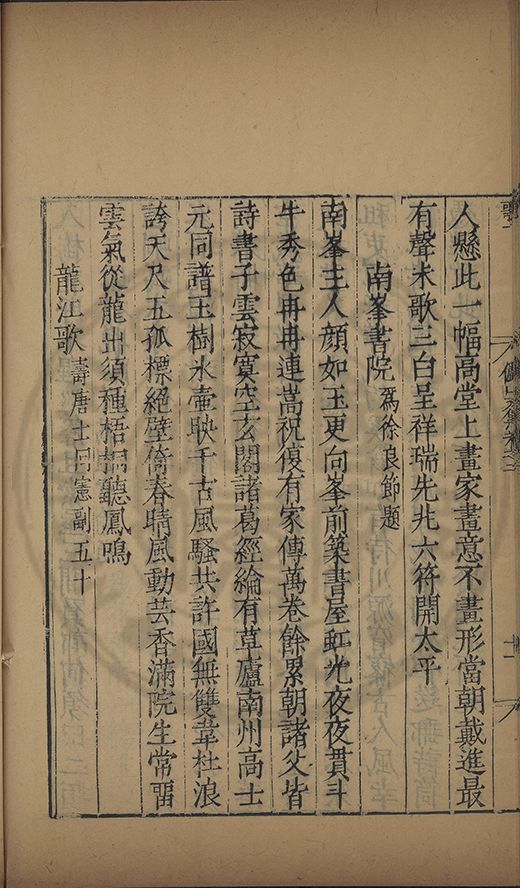 人懸此一幅高堂上畫家畫意不畫形當朝戴進最
有聲未歌三白呈祥瑞先兆六符開太平
南峯書院 爲徐良節題
南峯主人顔如玉更向峯前築書屋虹光夜夜貫斗
牛秀色冉冉連嵩祝復有家傳萬卷餘累朝諸父皆
詩書子雲寂寞空玄閣諸葛經綸有草廬南州高士
元同譜玉樹氷壷映千古風騷共許國無雙韋杜浪
誇天尺五孤標絕壁倚春晴風動芸香滿院生常畱
雲氣從龍出須種梧桐聽鳳鳴
龍江歌 壽唐士冋憲副五十